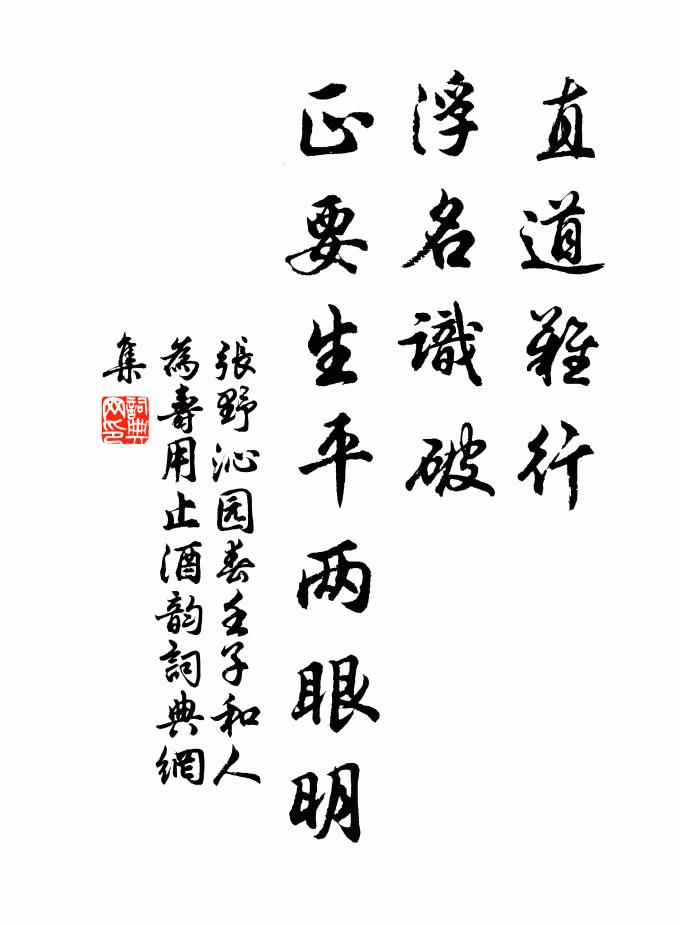 直道难行
浮名識破
正要生平两眼明
張野沁园春壬子和人
為壽用止酒韵詞典網
集
詞典网印